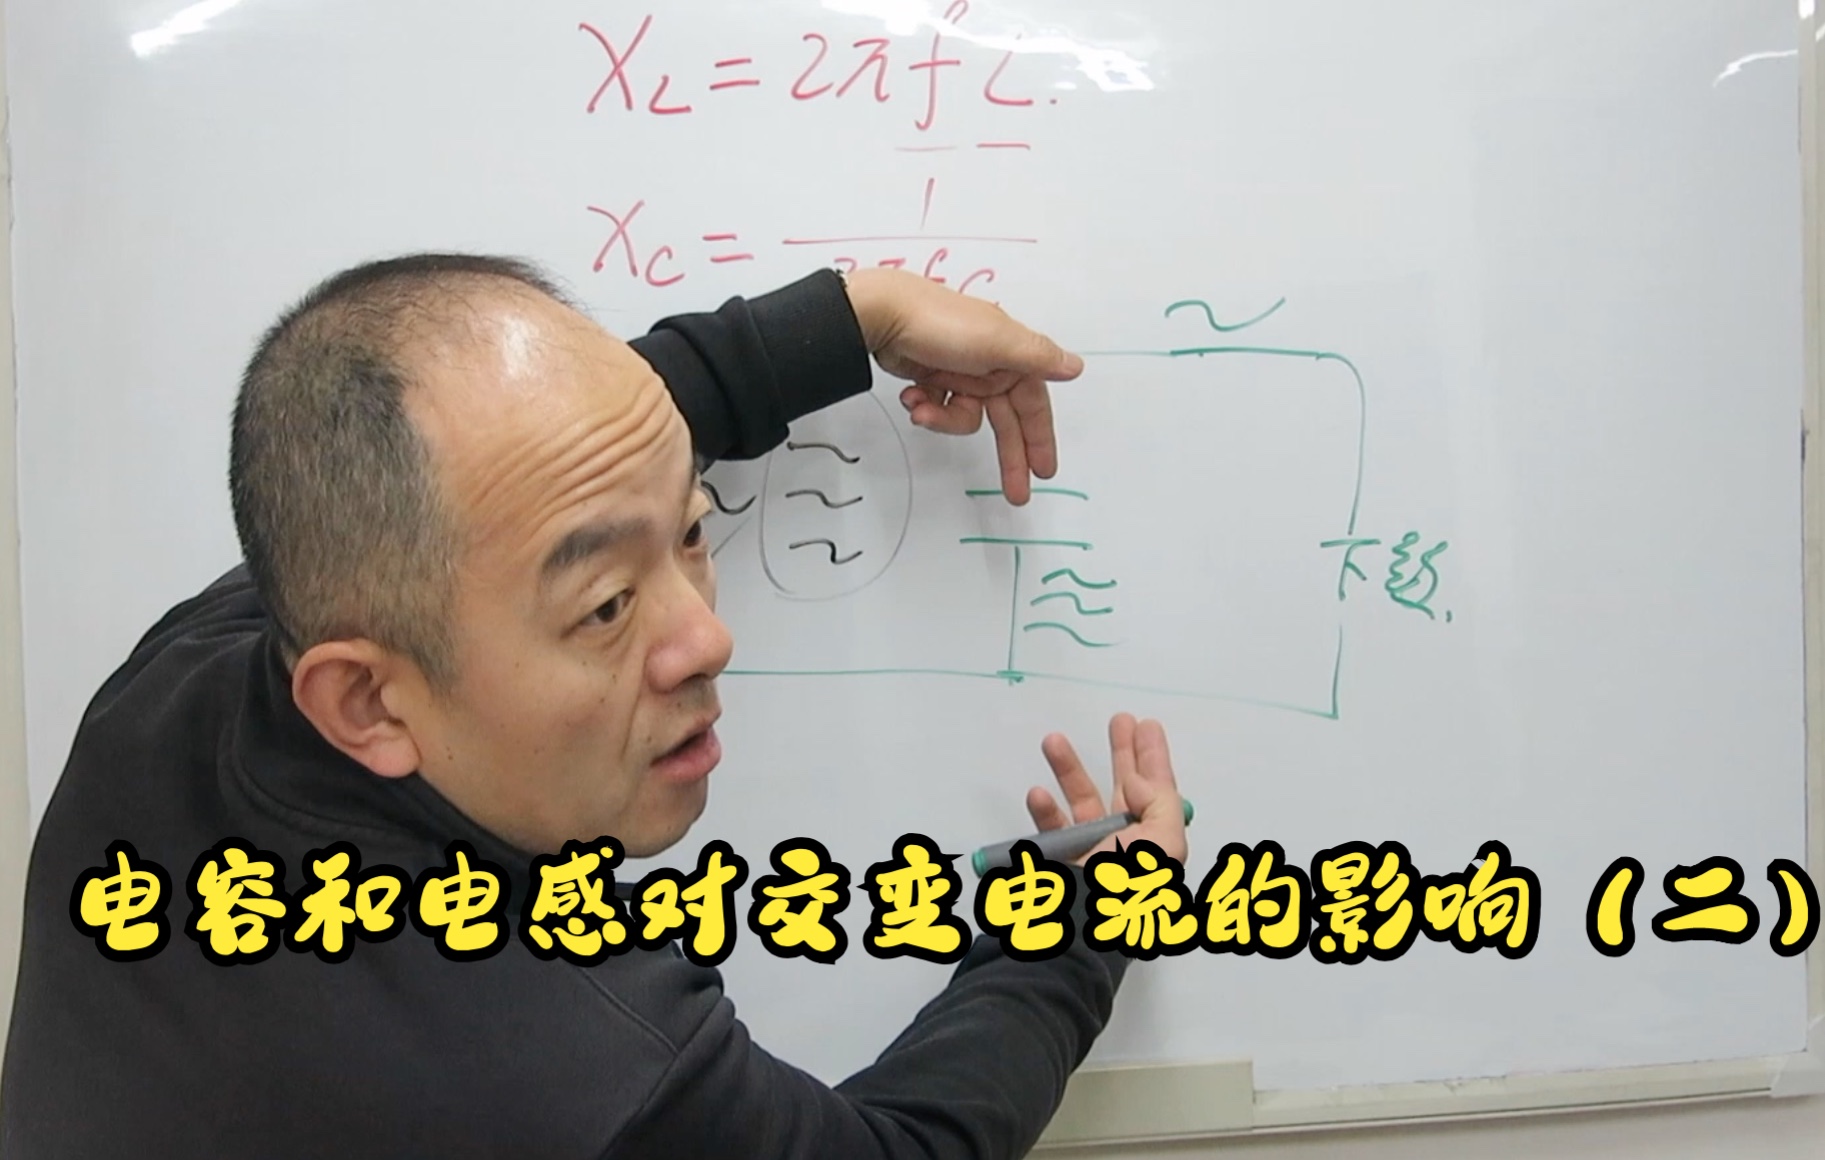 X_L = 2πfL.
X_C = 1/2πfC
~
~
~
~
~
下级.
电容和电感对交变电流的影响（二）